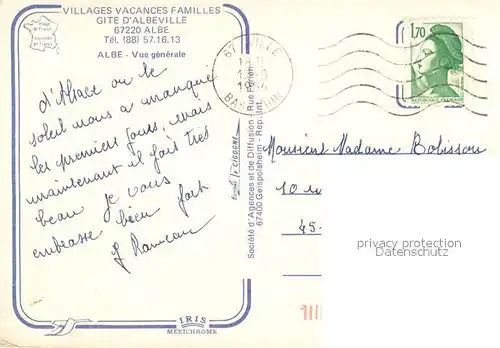 VILLAGES VACANCES FAMILLES
GITE D'ALBEVILLE
67220 ALBE
Tél. (88) 57.16.13
ALBE - Vue générale
67 VILLE
BAS RHIN
1,70
REPUBLIQUE FRANÇAISE
d'Alsace ou le
soleil nous a manqué
les premiers jours, mais
maintenant il fait très
beau je vous
embrasse bien fort
J Rameau
Editions "la CIGOGNE"
Société d'Agences et de Diffusion - Rue
67400 Geispolsheim - Rep. Int.
Monsieur Madame Bobisson
10 rue
45-
privacy protection
Datenschutz
IRIS
MEXICHROME